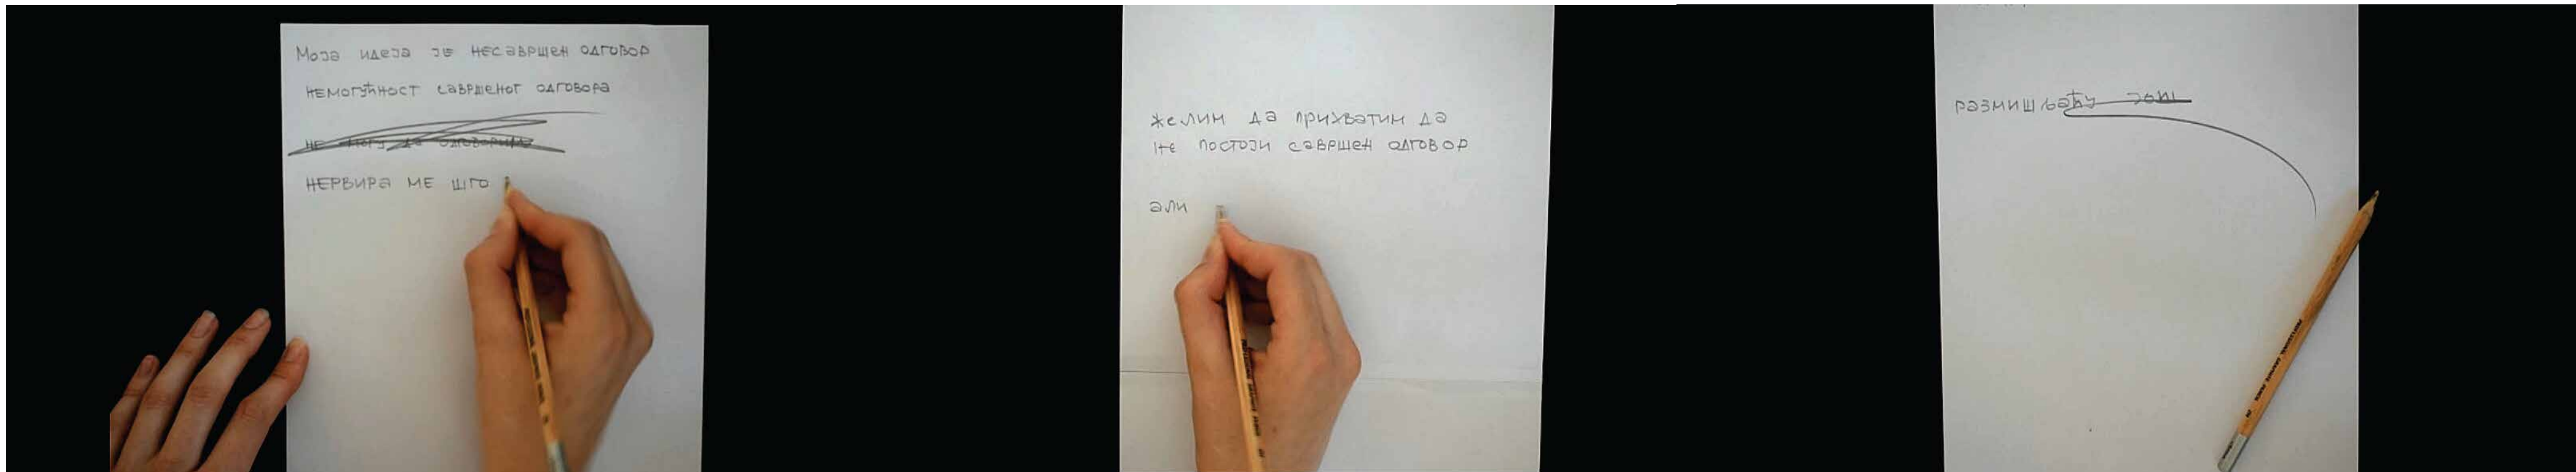 Моја идеја је несавршен одговор
немогућност савршеног одговора
не могу да одговорим
нервира ме што
желим да прихватим да
не постоји савршен одговор
али
размишљаћу још